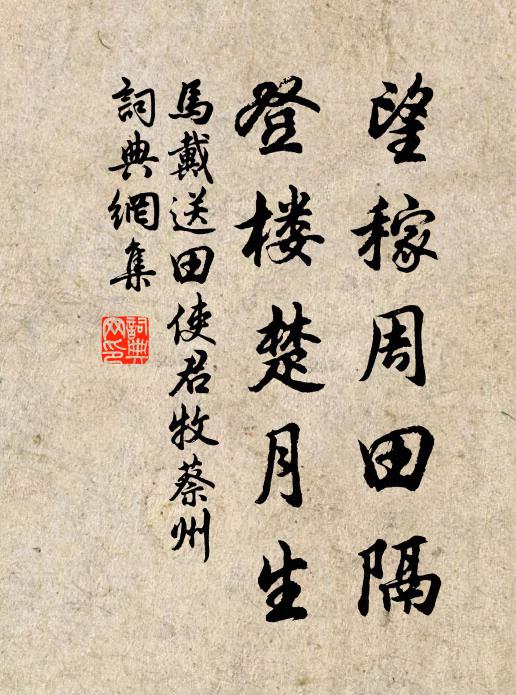 望稼周田隔
登楼楚月生
馬戴送田使君牧蔡州
詞典網集
詞典
网印